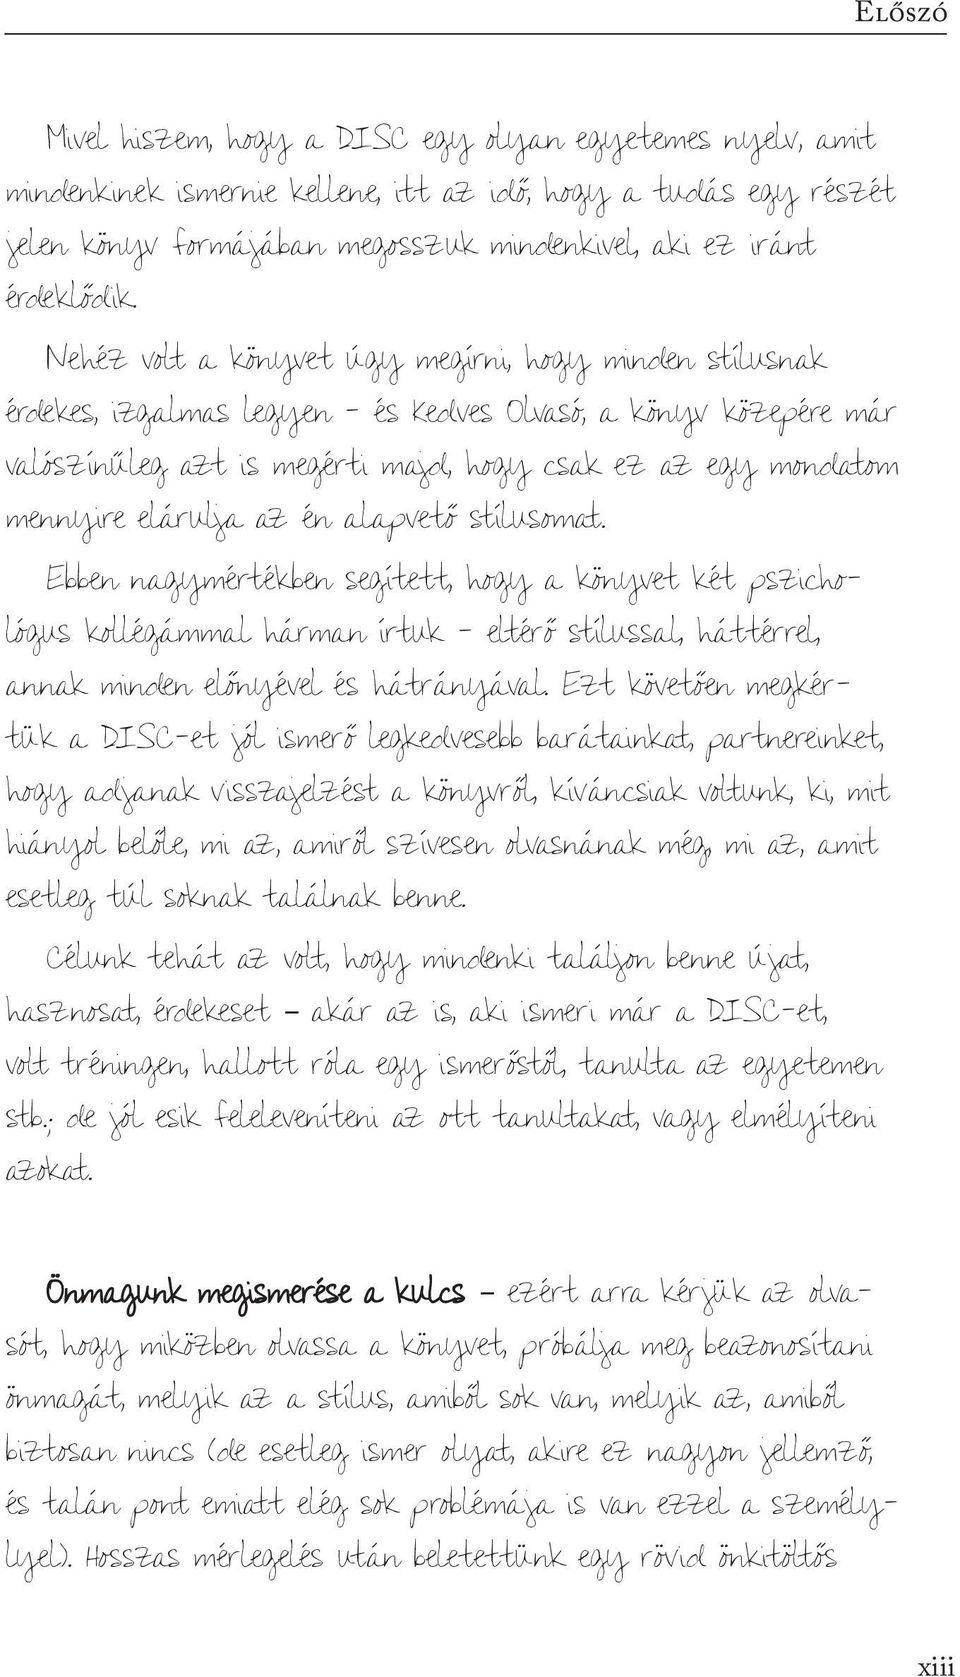 Előszó
Mivel hiszem, hogy a DISC egy olyan egyetemes nyelv, amit
mindenkinek ismernie kellene, itt az idő, hogy a tudás egy részét
jelen könyv formájában megosszuk mindenkivel, aki ez iránt
érdeklődik.
Nehéz volt a könyvet úgy megírni, hogy minden stílusnak
érdekes, izgalmas legyen - és Kedves Olvasó, a könyv közepére már
valószínűleg azt is megérti majd, hogy csak ez az egy mondatom
mennyire elárulja az én alapvető stílusomat.
Ebben nagymértékben segített, hogy a könyvet két pszicho-
lógus kollégámmal hárman írtuk - eltérő stílussal, háttérrel,
annak minden előnyével és hátrányával. Ezt követően megkér-
tük a DISC-et jól ismerő legkedvesebb barátainkat, partnereinket,
hogy adjanak visszajelzést a könyvről, kíváncsiak voltunk, ki, mit
hiányol belőle, mi az, amiről szívesen olvasnának még, mi az, amit
esetleg túl soknak találnak benne.
Célunk tehát az volt, hogy mindenki találjon benne újat,
hasznosat, érdekeset – akár az is, aki ismeri már a DISC-et,
volt tréningen, hallott róla egy ismerőstől, tanulta az egyetemen
stb.; de jól esik feleleveníteni az ott tanultakat, vagy elmélyíteni
azokat.
Önmagunk megismerése a kulcs – ezért arra kérjük az olva-
sót, hogy miközben olvassa a könyvet, próbálja meg beazonosítani
önmagát, melyik az a stílus, amiből sok van, melyik az, amiből
biztosan nincs (de esetleg ismer olyat, akire ez nagyon jellemző,
és talán pont emiatt elég sok problémája is van ezzel a személy-
lyel). Hosszas mérlegelés után beletettünk egy rövid önkitöltős
xiii